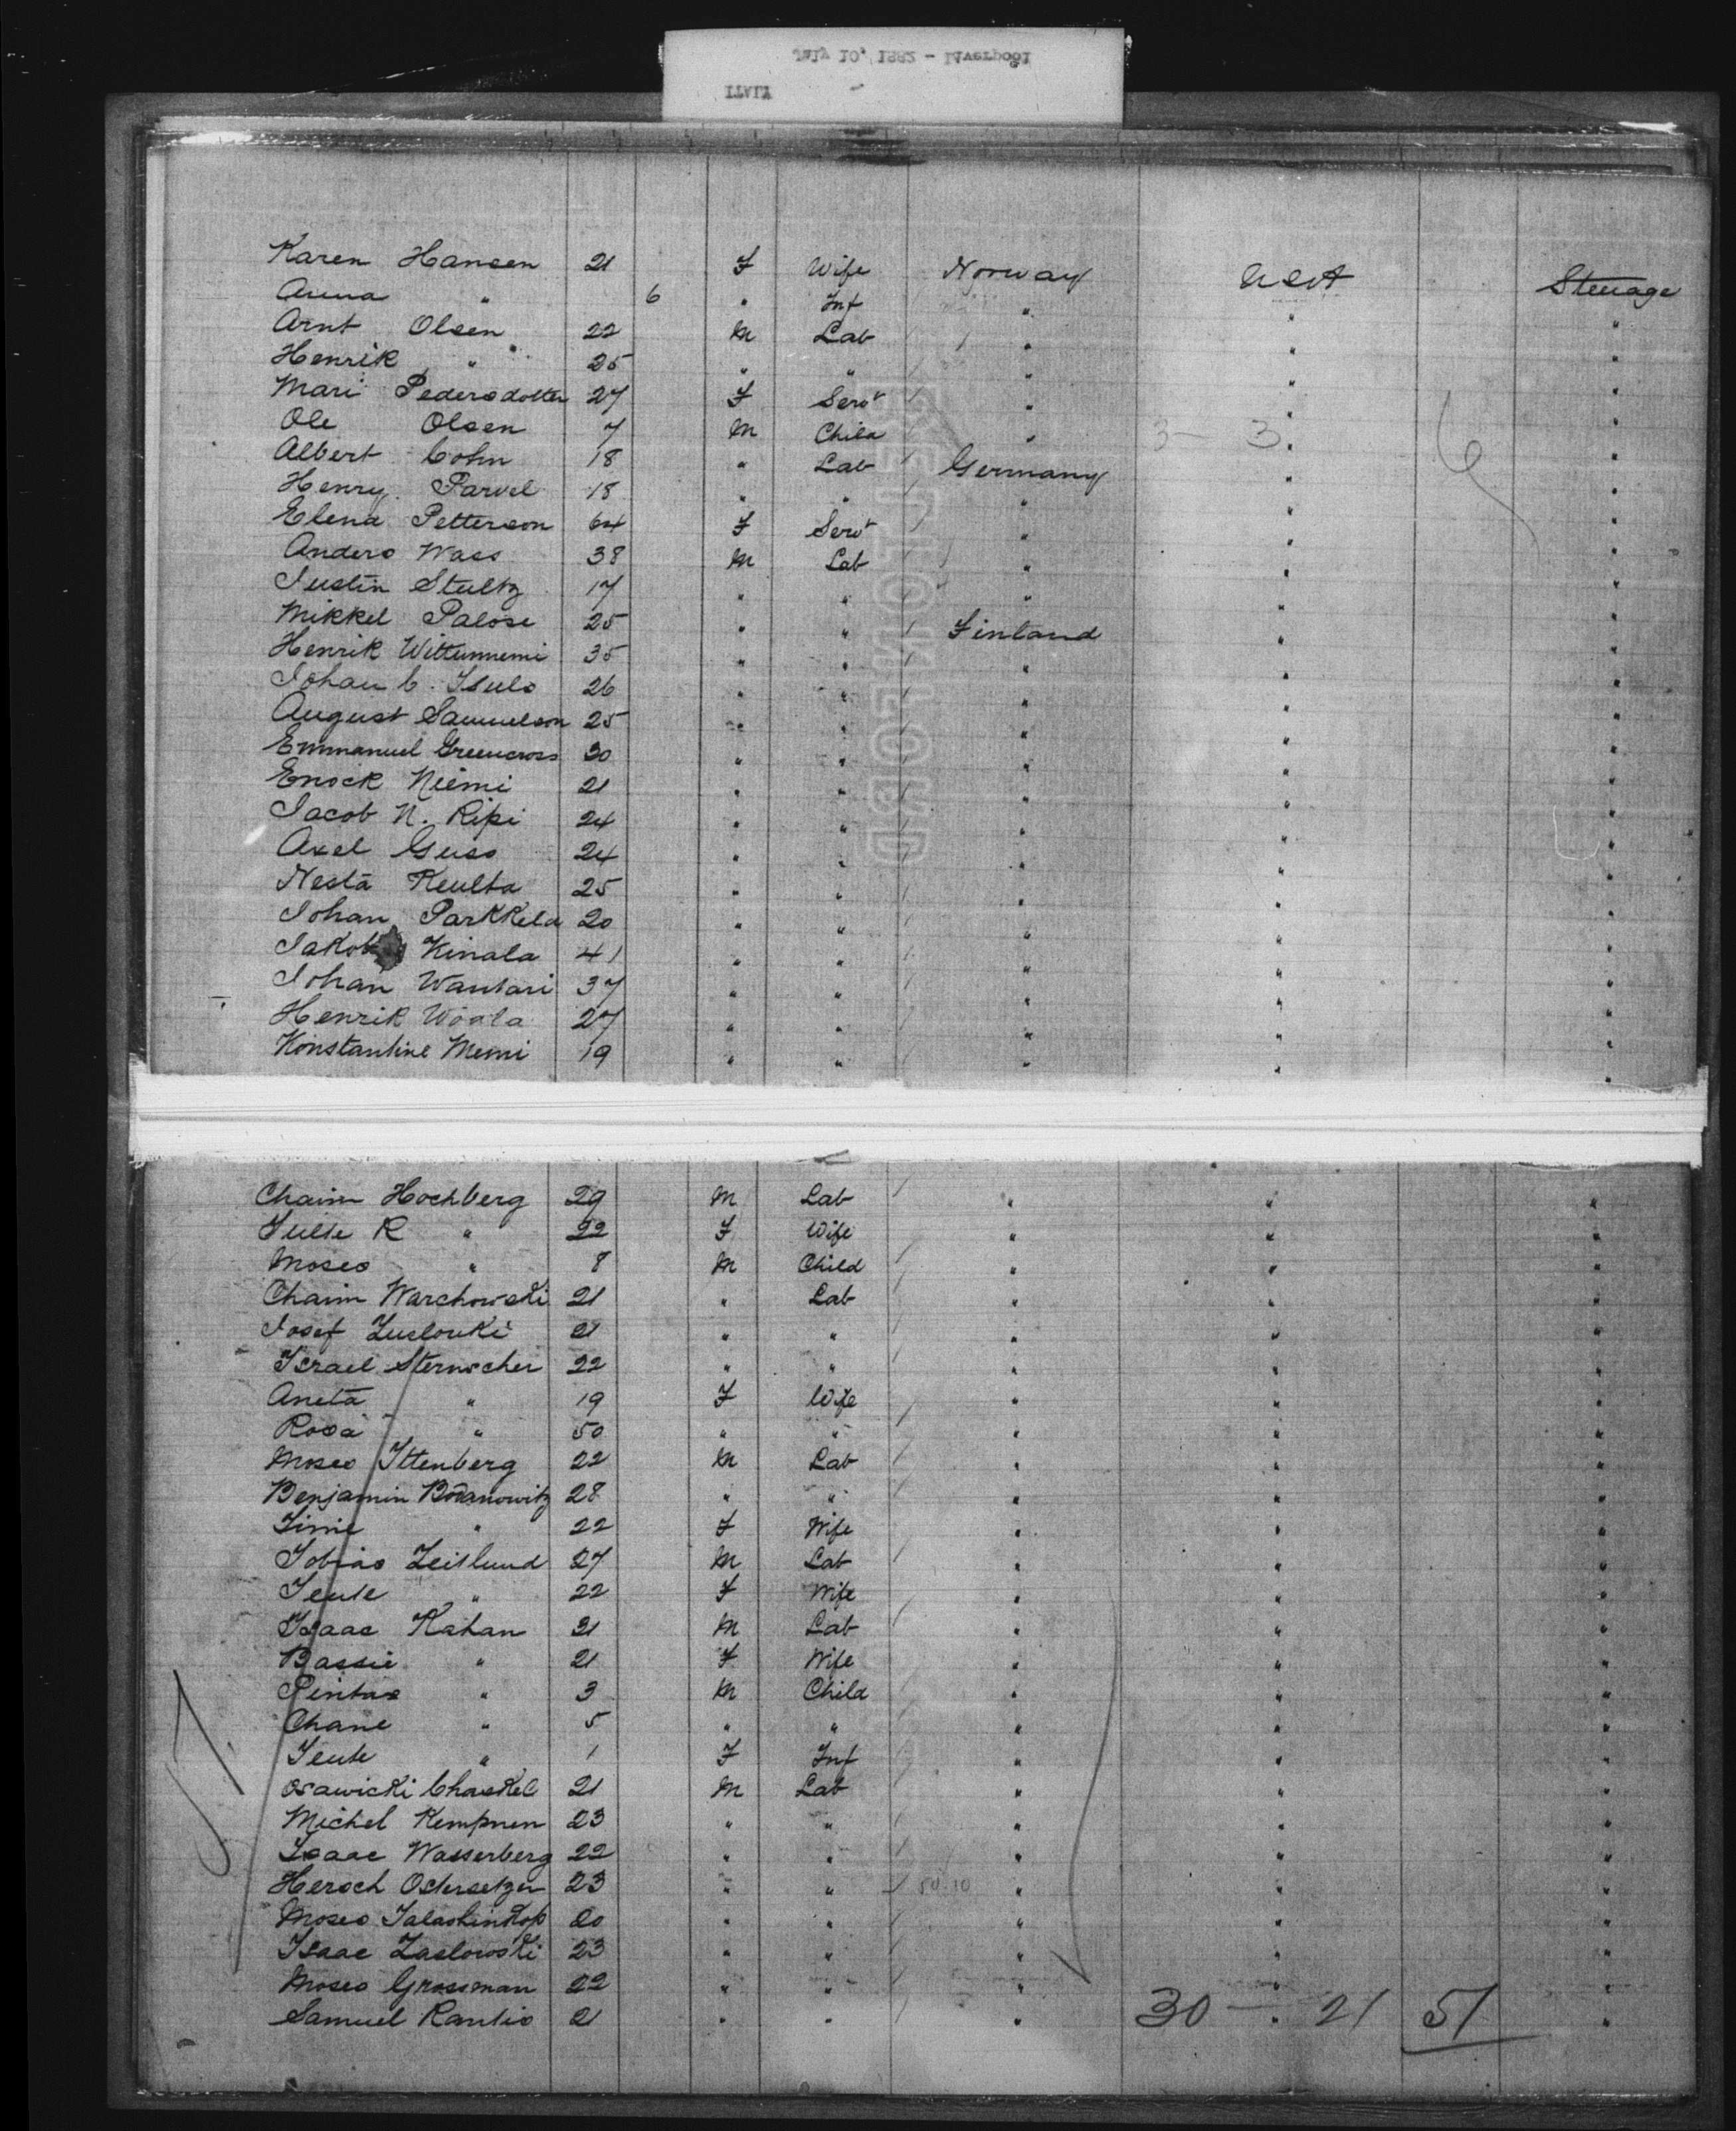 July 10, 1882 - Liverpool
Karen Hansen 21 F Wife Norway USA Steerage
Anna " 6 " Inf " " "
Arnt Olsen 22 M Lab " " "
Henrik " 25 " " " " "
Mari Pedersdotter 27 F Servt " " "
Ole Olsen 7 M Child " 3 - 3 " 6 "
Albert Cohn 18 " Lab Germany " "
Henry Parvel 18 " " " " "
Elena Petterson 64 F Servt " " "
Anders Wass 38 M Lab " " "
Justin Stultz 17 " " " " "
Mikkel Palose 25 " " Finland " "
Henrik 35 " " " " "
Johan C. 26 " " " " "
August Samuelson 25 " " " " "
Emmanuel Greencross 30 " " " " "
Enock Niemi 21 " " " " "
Jacob N. Ripi 24 " " " " "
Axel Guss 24 " " " " "
Nesta Keulta 25 " " " " "
Johan Parkkela 20 " " " " "
Jakob Kinala 41 " " " " "
Johan Wantari 37 " " " " "
Henrik Woala 27 " " " " "
Konstantine Memi 19 " " " " "
Chaim Hochberg 29 M Lab " " "
R " 22 F Wife " " "
Moses " 8 M Child " " "
Chaim Warchowski 21 " Lab " " "
Josef 21 " " " " "
Israel Sternscher 22 " " " " "
Aneta " 19 F Wife " " "
Rosa " 50 " " " " "
Moses Ittenberg 22 M Lab " " "
Benjamin Bodanowitz 28 " " " " "
" 22 F Wife " " "
Tobias Zeitlund 27 M Lab " " "
Teute " 22 F Wife " " "
Isaac Kahan 21 M Lab " " "
Bassie " 21 F Wife " " "
Pintas " 3 M Child " " "
Chane " 5 " " " " "
Teute " 1 F Inf " " "
Osawicki Chaskel 21 M Lab " " "
Michel Kempnen 23 " " " " "
Isaac Wasserberg 22 " " " " "
Hersch Ostersetzer 23 " " " " "
Moses 20 " " " " "
Isaac Zaslowski 23 " " " " "
Moses Grossman 22 " " " " "
Samuel Rantis 21 " " " 30 - " 21 51 "